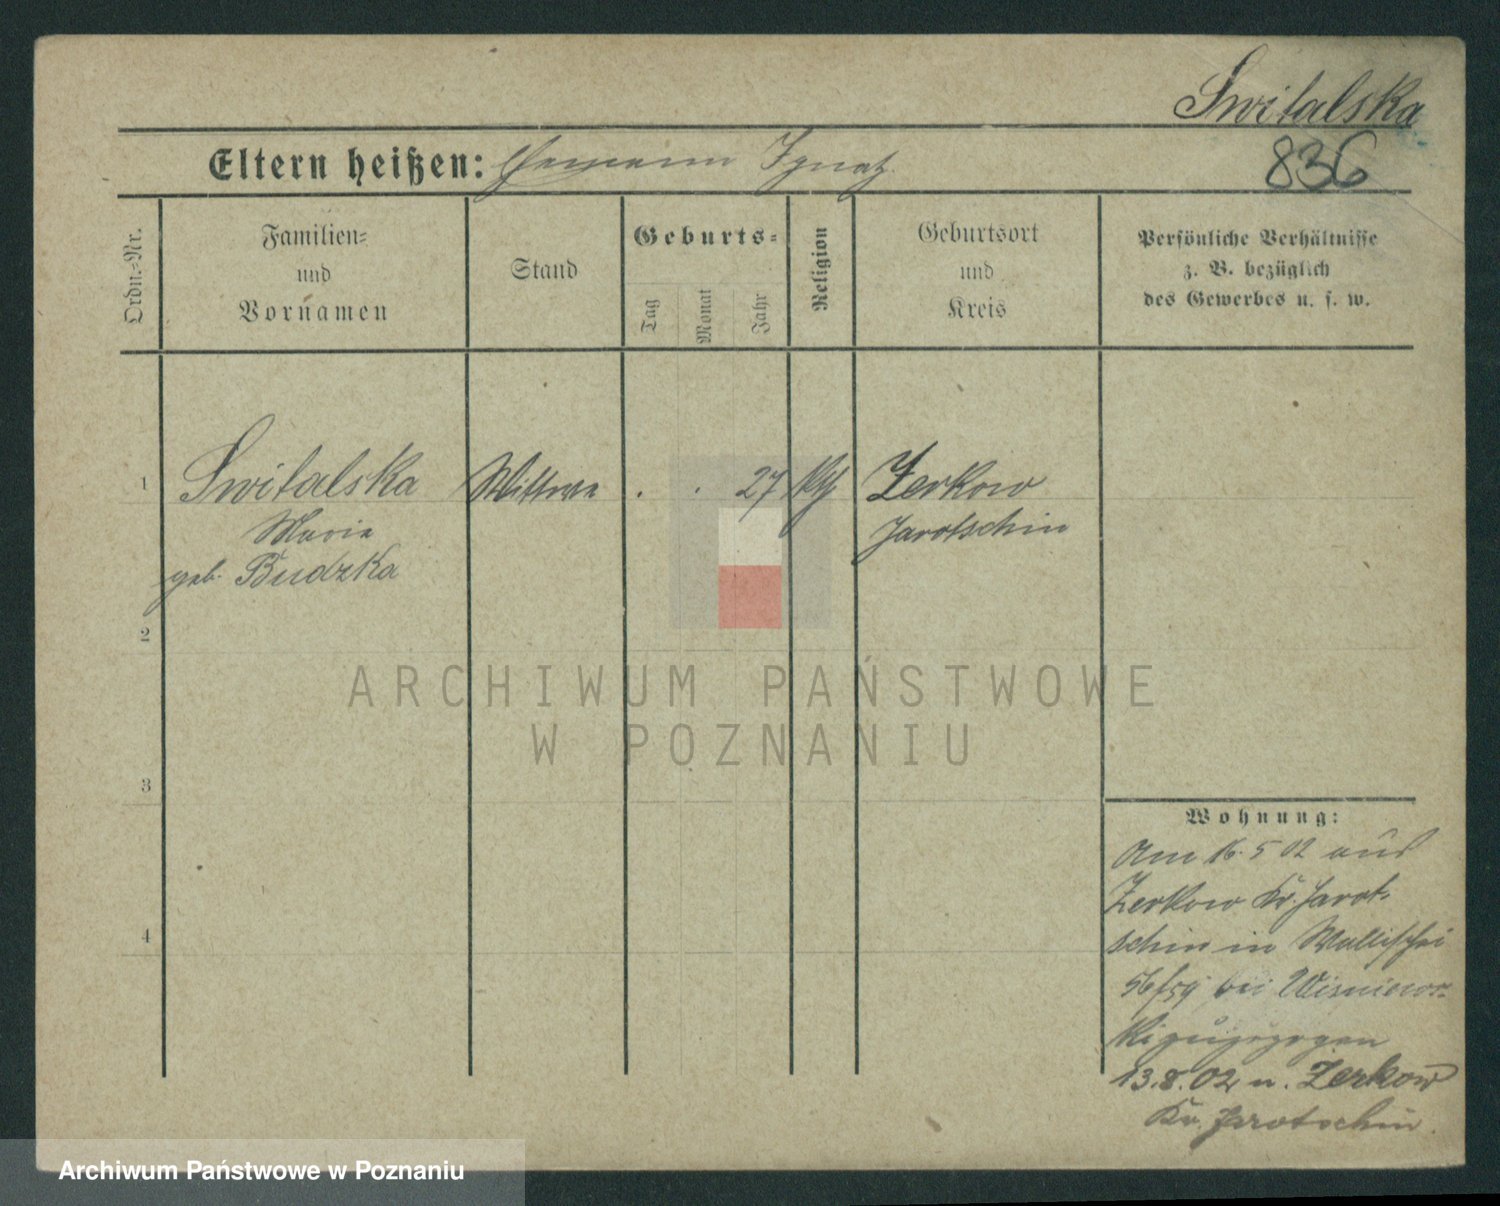 Switalska
836
Eltern heißen: Ignatz
Ordn.=Nr.
Familien=
und
Vornamen
Stand
Geburts=
Tag
Monat
Jahr
Religion
Geburtsort
und
Kreis
Persönliche Verhältnisse
z. B. bezüglich
des Gewerbes u. s. w.
1 Switalska Wittwe . . 27 Zerkow
Marie Jarotschin
geb. Budzka
2
ARCHIWUM PAŃSTWOWE
W POZNANIU
3
4
Wohnung:
Am 16. 5 02 aus
Zerkow Kr. Jarot-
schin in Wallischei
56/59 bei Wisniews-
ki zugezogen
13.8.02 n. Zerkow
Kr. Jarotschin.
Archiwum Państwowe w Poznaniu